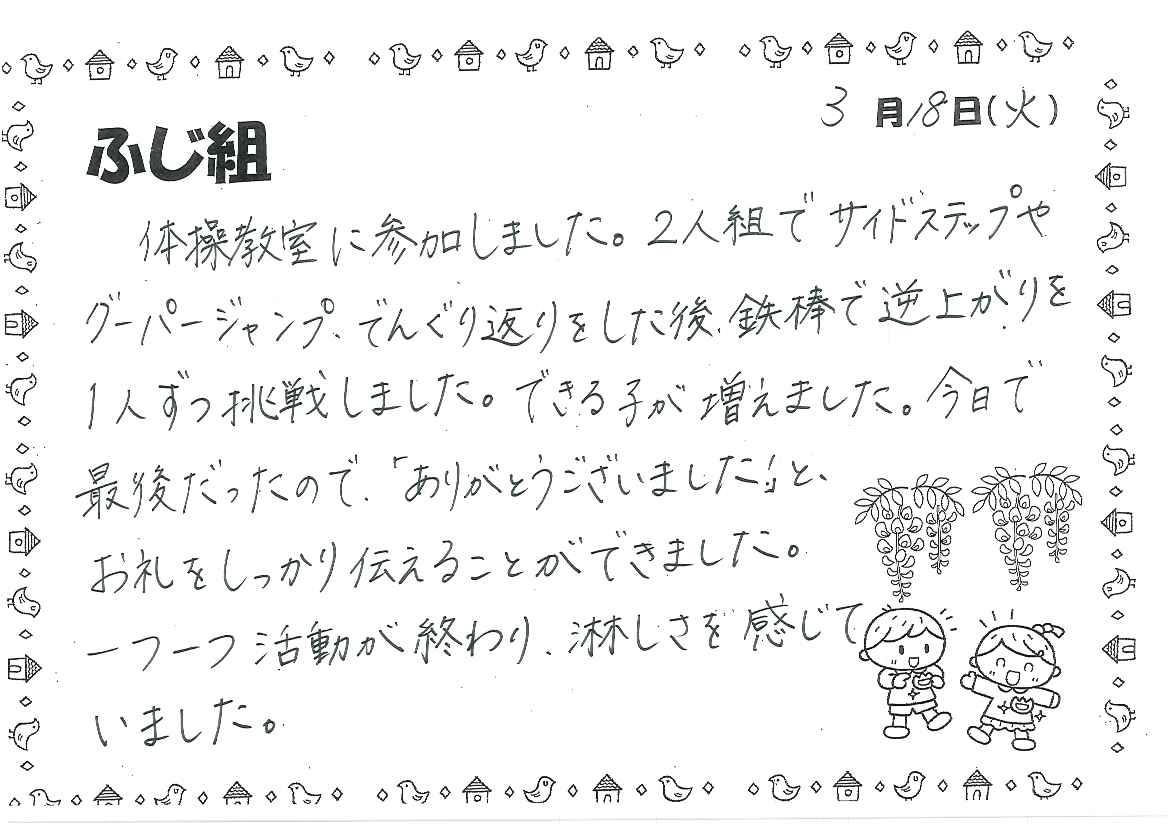 3月18日(火)
ふじ組
体操教室に参加しました。2人組でサイドステップや
グーパージャンプ、でんぐり返りをした後、鉄棒で逆上がりを
1人ずつ挑戦しました。できる子が増えました。今日で
最後だったので、「ありがとうございました!」と、
お礼をしっかり伝えることができました。
一つ一つ活動が終わり、淋しさを感じて
いました。